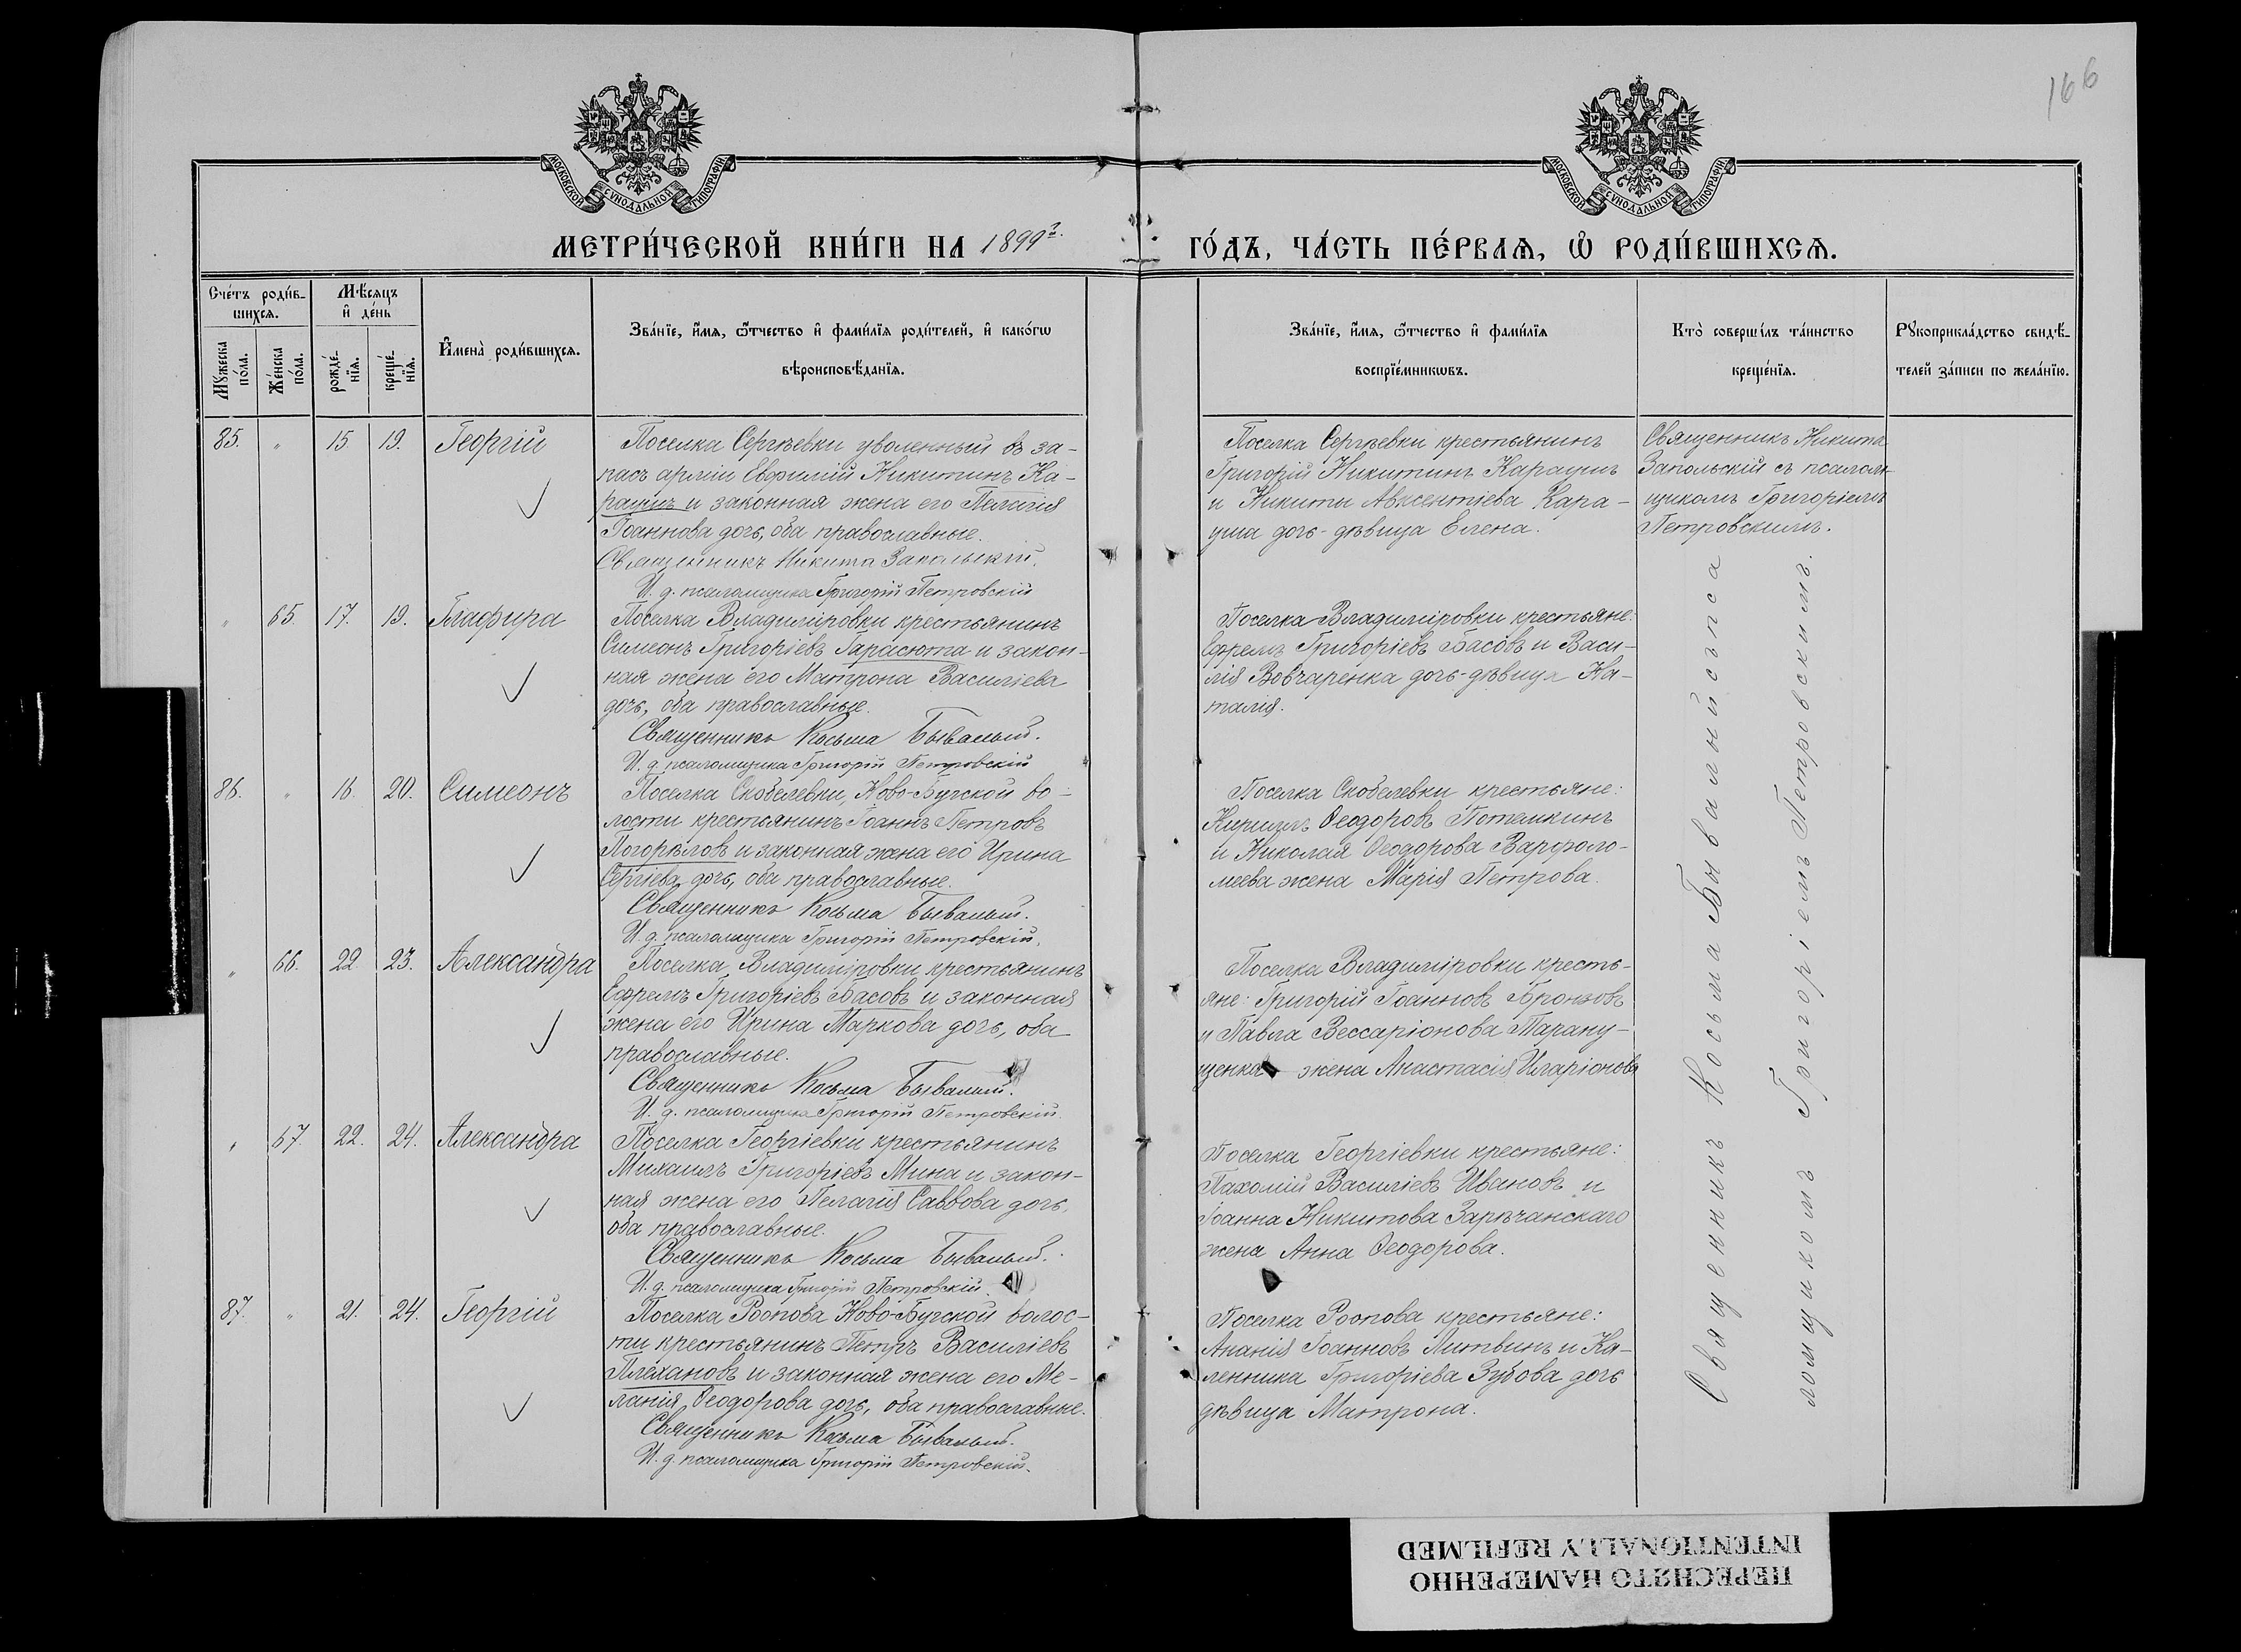 166
МОСКОВСКОЙ СУНОДАЛЬНОЙ ТИПОГРАФІИ
МОСКОВСКОЙ СУНОДАЛЬНОЙ ТИПОГРАФІИ
МЕТРИ́ЧЕСКОЙ КНИ́ГИ НА 1899й.
ГО́ДЪ, ЧА́СТЬ ПЕ́РВАѦ, Ѽ РОДИ́ВШИХСѦ.
Сче́тъ роди́в-
шихсѧ.
Мѣ́сѧцъ
и҆ де́нь
Мꙋ́жеска
по́ла.
Же́нска
по́ла.
рожде́-
нїѧ.
креще́-
нїѧ.
И҆мена̀ роди́вшихсѧ.
Зва́нїе, и҆́мѧ, ѻ҆́тчество и҆ фами́лїѧ роди́телей, и҆ како́гѡ
вѣроисповѣ́данїѧ.
Зва́нїе, и҆́мѧ, ѻ҆́тчество и҆ фами́лїѧ
воспрїе́мникѡвъ.
Кто̀ соверши́лъ та́инство
креще́нїѧ.
Рꙋкоприкла́дство свидѣ́-
телей за́писи по жела́нїю.
85. " 15 19. Георгій
Поселка Сергѣевки уволенный въ за-
пасъ арміи Евфимій Никитинъ Ка-
раушъ и законная жена его Пелагія
Іоаннова дочь, оба православные.
Священникъ Никита Запольскій.
И. д. псаломщика Григорій Петровскій
Поселка Сергѣевки крестьянинъ
Григорій Никитинъ Караушъ
и Никиты Авксентіева Кара-
уша дочь-дѣвица Елена.
Священникъ Никита
Запольскій съ псалом-
щикомъ Григоріемъ
Петровскимъ.
" 65. 17. 19. Глафира
Поселка Владиміровки крестьянинъ
Симеонъ Григоріевъ Гарасюта и закон-
ная жена его Матрона Василіева
дочь, оба православные.
Священникъ Косьма Бывалый.
И. д. псаломщика Григорій Петровскій
Поселка Владиміровки крестьяне:
Ефремъ Григоріевъ Басовъ и Васи-
лія Вовчаренка дочь-дѣвица На-
талія.
86. " 16 20. Симеонъ
Поселка Скобелевки, Ново-Бугской во-
лости крестьянинъ Іоаннъ Петровъ
Погорѣловъ и законная жена его Ирина
Сергіева дочь, оба православные.
Священникъ Косьма Бывалый.
И. д. псаломщика Григорій Петровскій.
Поселка Скобелевки крестьяне:
Кириллъ Ѳеодоровъ Потемкинъ
и Николая Ѳеодорова Варфоло-
меева жена Марія Петрова.
" 66. 22 23. Александра
Поселка Владиміровки крестьянинъ
Ефремъ Григоріевъ Басовъ и законная
жена его Ирина Маркова дочь, оба
православные.
Священникъ Косьма Бывалый.
И. д. псаломщика Григорій Петровскій.
Поселка Владиміровки кресть-
яне: Григорій Іоанновъ Бронзовъ
и Павла Вессаріонова Парану-
щенка жена Анастасія Иларіонова
" 67. 22. 24. Александра
Поселка Георгіевки крестьянинъ
Михаилъ Григоріевъ Мина и закон-
ная жена его Пелагія Саввова дочь,
оба православные.
Священникъ Косьма Бывалый.
И. д. псаломщика Григорій Петровскій.
Поселка Георгіевки крестьяне:
Пахомій Василіевъ Ивановъ и
Іоанна Никитова Зарѣчанскаго
жена Анна Ѳеодорова.
87. " 21. 24. Георгій
Поселка Роопова Ново-Бугской волос-
ти крестьянинъ Петръ Василіевъ
Плехановъ и законная жена его Ме-
ланія Ѳеодорова дочь, оба православные.
Священникъ Косьма Бывалый.
И. д. псаломщика Григорій Петровскій.
Поселка Роопова крестьяне:
Ананія Іоанновъ Литвинъ и Ка-
ленника Григоріева Зубова дочь
дѣвица Матрона.
Священникъ Косьма Бывалый съ пса
ломщикомъ Григоріемъ Петровскимъ.
ПЕРЕСНЯТО НАМЕРЕННО
INTENTIONALLY REFILMED